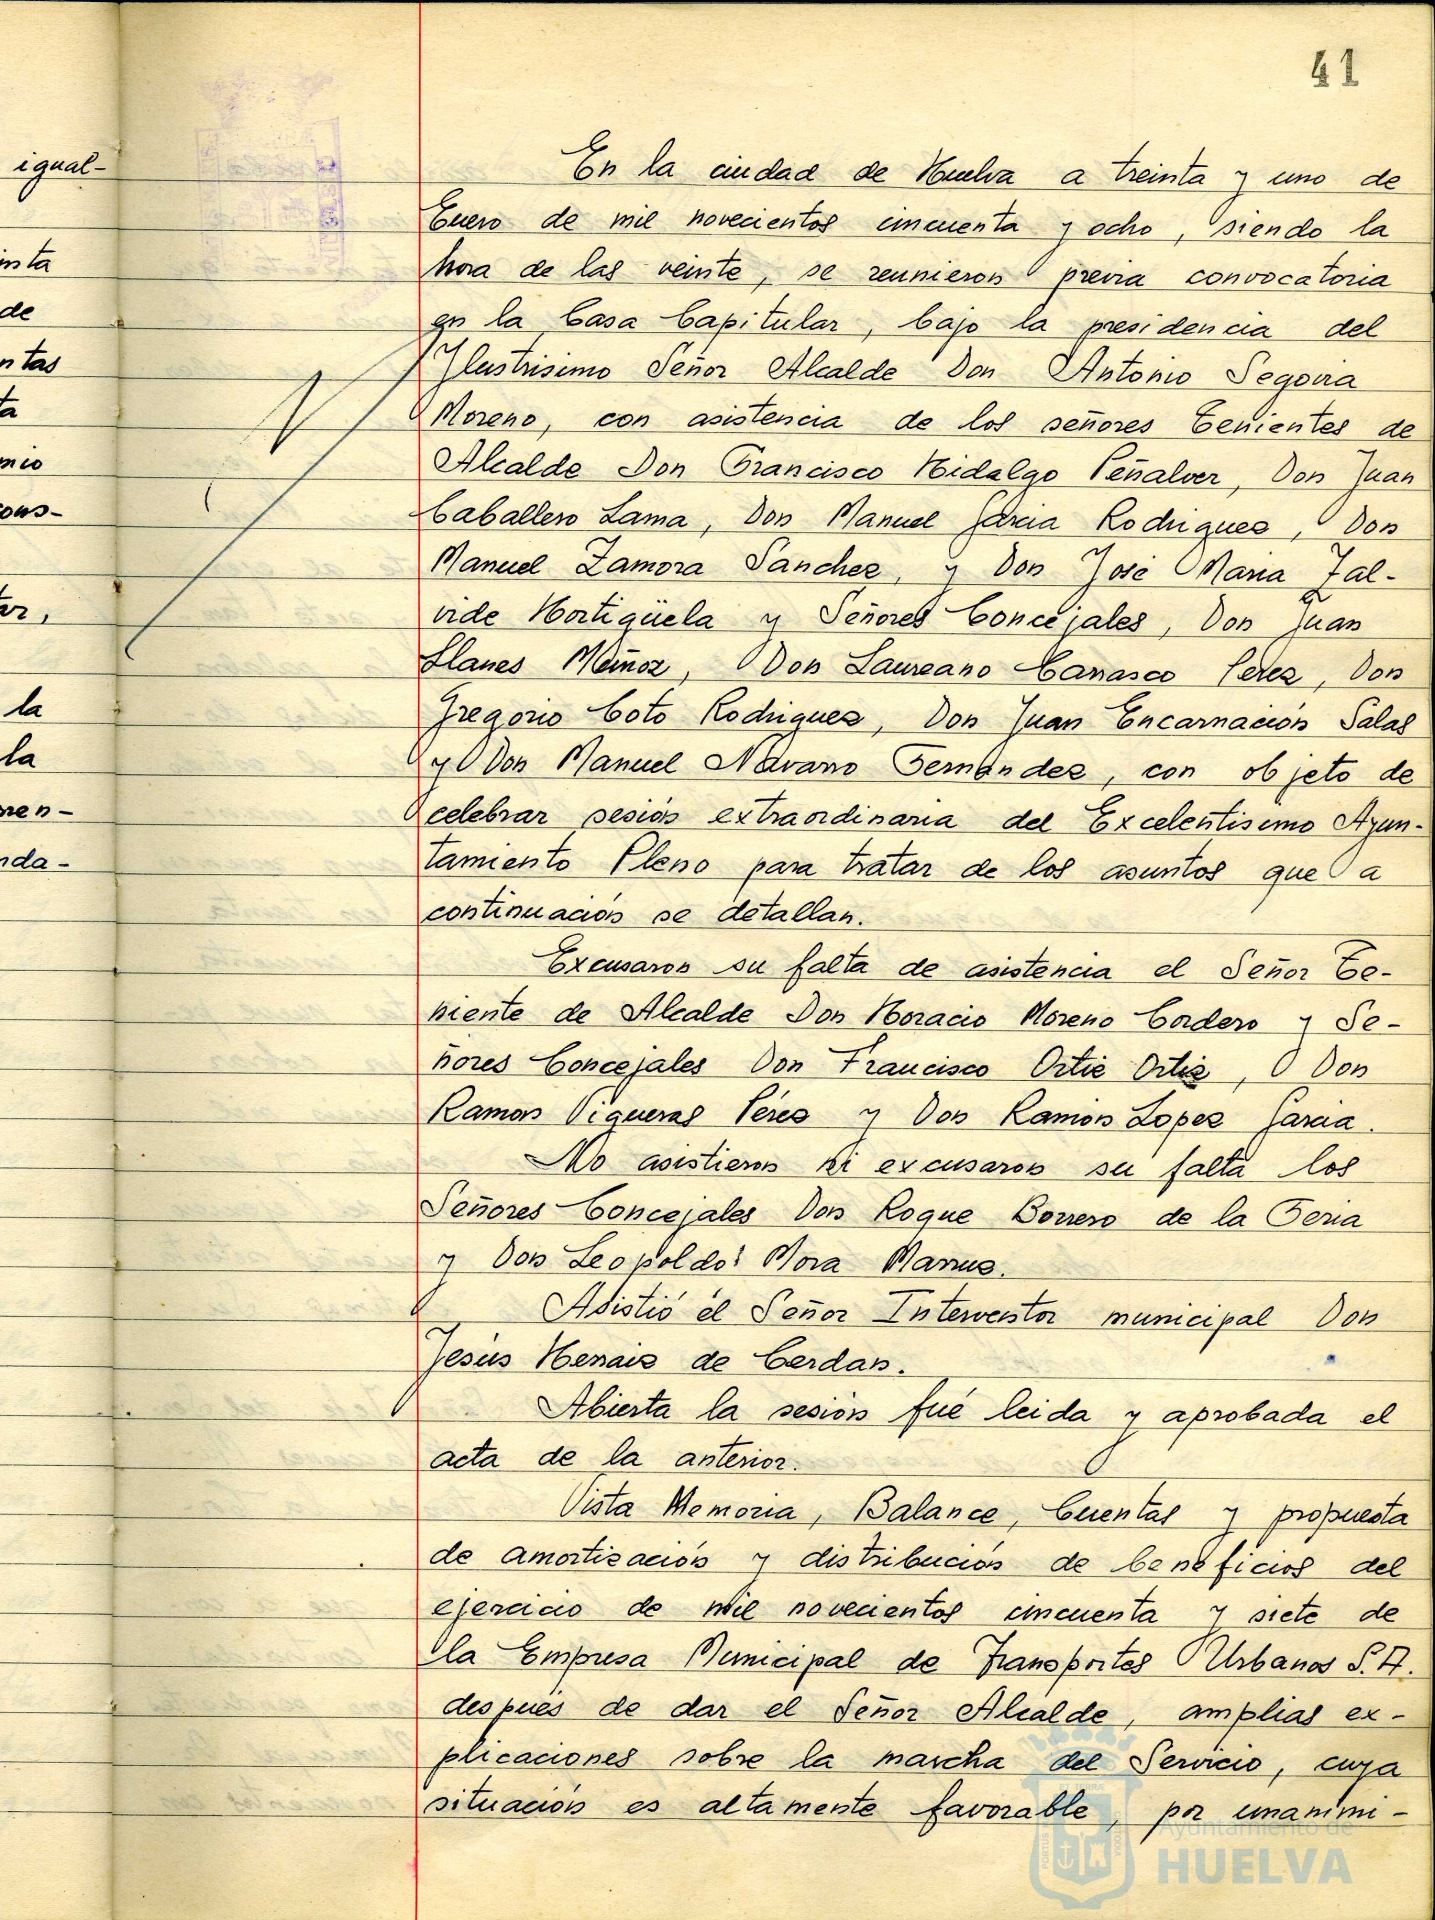 41
igual-
de
ntas
ta
mio
cons-
la
la
En la ciudad de Huelva a treinta y uno de
Enero de mil novecientos cincuenta y ocho, siendo la
hora de las veinte, se reunieron previa convocatoria
en la Casa Capitular, bajo la presidencia del
Ilustrisimo Señor Alcalde Don Antonio Segovia
Moreno, con asistencia de los señores Tenientes de
Alcalde Don Francisco Hidalgo Peñalver, Don Juan
Caballero Lama, Don Manuel Garcia Rodriguez, Don
Manuel Zamora Sanchez, y Don José Maria Zal-
vide Hortigüela y Señores Concejales, Don Juan
Llanes Muñoz, Don Laureano Carrasco Perez, Don
Gregorio Coto Rodriguez, Don Juan Encarnación Salas
y Don Manuel Navarro Fernandez, con objeto de
celebrar sesión extraordinaria del Excelentisimo Ayun-
tamiento Pleno para tratar de los asuntos que a
continuación se detallan.
Excusaron su falta de asistencia el Señor Te-
niente de Alcalde Don Horacio Moreno Cordero y Se-
ñores Concejales Don Francisco Ortiz Ortiz, Don
Ramon Vigueras Pérez y Don Ramón Lopez Garcia.
No asistieron ni excusaron su falta los
Señores Concejales Don Roque Borrero de la Feria
y Don Leopoldo Mora
Asistió el Señor Interventor municipal Don
Jesús de Cerdan.
Abierta la sesión fué leida y aprobada el
acta de la anterior.
Vista Memoria, Balance, Cuentas y propuesta
de amortización y distribución de beneficios del
ejercicio de mil novecientos cincuenta y siete de
la Empresa Municipal de Transportes Urbanos S.A.
después de dar el Señor Alcalde, amplias ex-
plicaciones sobre la marcha del Servicio, cuya
situación es altamente favorable, por unanimi-
Ayuntamiento de
HUELVA